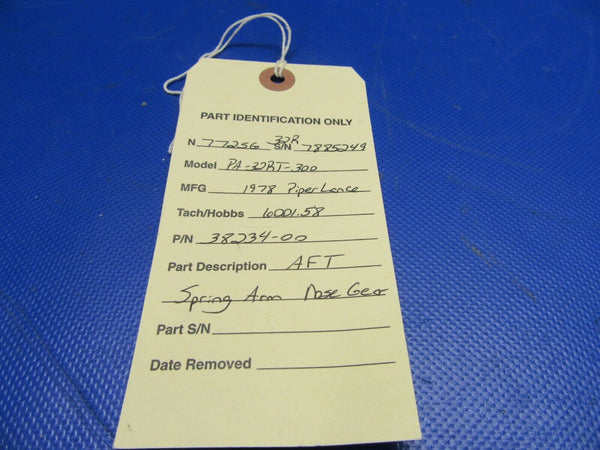 PART IDENTIFICATION ONLY
32R
N 77256 S/N 7885249
Model PA-32RT-300
MFG 1978 Piper Lance
Tach/Hobbs 6001.58
P/N 38234-00
Part Description AFT
Spring Arm Nose Gear
Part S/N
Date Removed